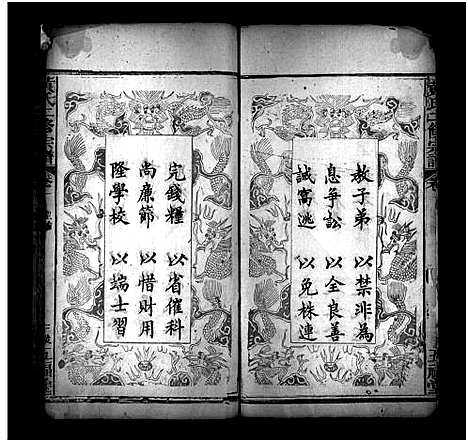 教子弟 以禁非為
息爭訟 以全良善
誡窩逃 以免株連
完錢糧 以省催科
尚廉節 以惜財用
隆學校 以端士習